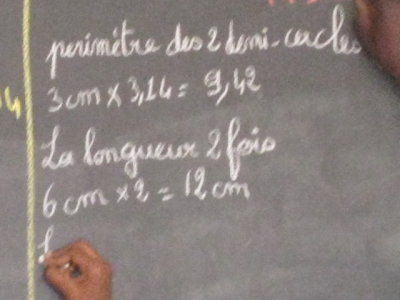 périmètre des 2 demi-cercles
3cm x 3,14 = 9,42
La longueur 2 fois
6cm x 2 = 12cm